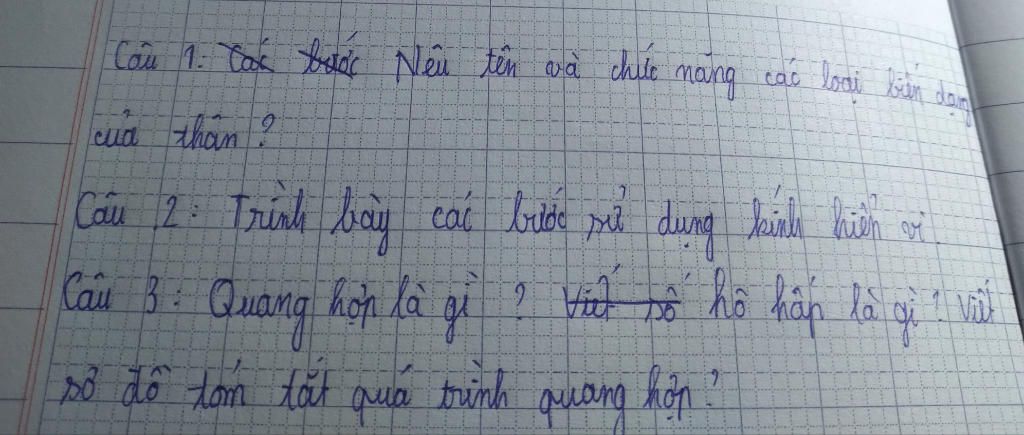 Câu 1: Các bước Nêu tên và chức năng các loại biến dạng
của thân?
Câu 2: Trình bày các bước sử dụng kính hiển vi.
Câu 3: Quang hợp là gì? Viết sơ hô hấp là gì? Viết
sơ đồ tóm tắt quá trình quang hợp?